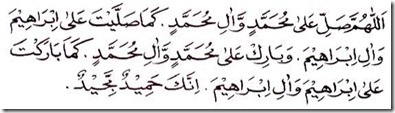 اَللّٰهُمَّ صَلِّ عَلٰى مُحَمَّدٍ وَّاٰلِ مُحَمَّدٍ . كَمَا صَلَّيْتَ عَلٰى اِبْرَاهِيْمَ
وَاٰلِ اِبْرَاهِيْمَ . وَبَارِكْ عَلٰى مُحَمَّدٍ وَّاٰلِ مُحَمَّدٍ . كَمَا بَارَكْتَ
عَلٰى اِبْرَاهِيْمَ وَاٰلِ اِبْرَاهِيْمَ . اِنَّكَ حَمِيْدٌ مَّجِيْدٌ .